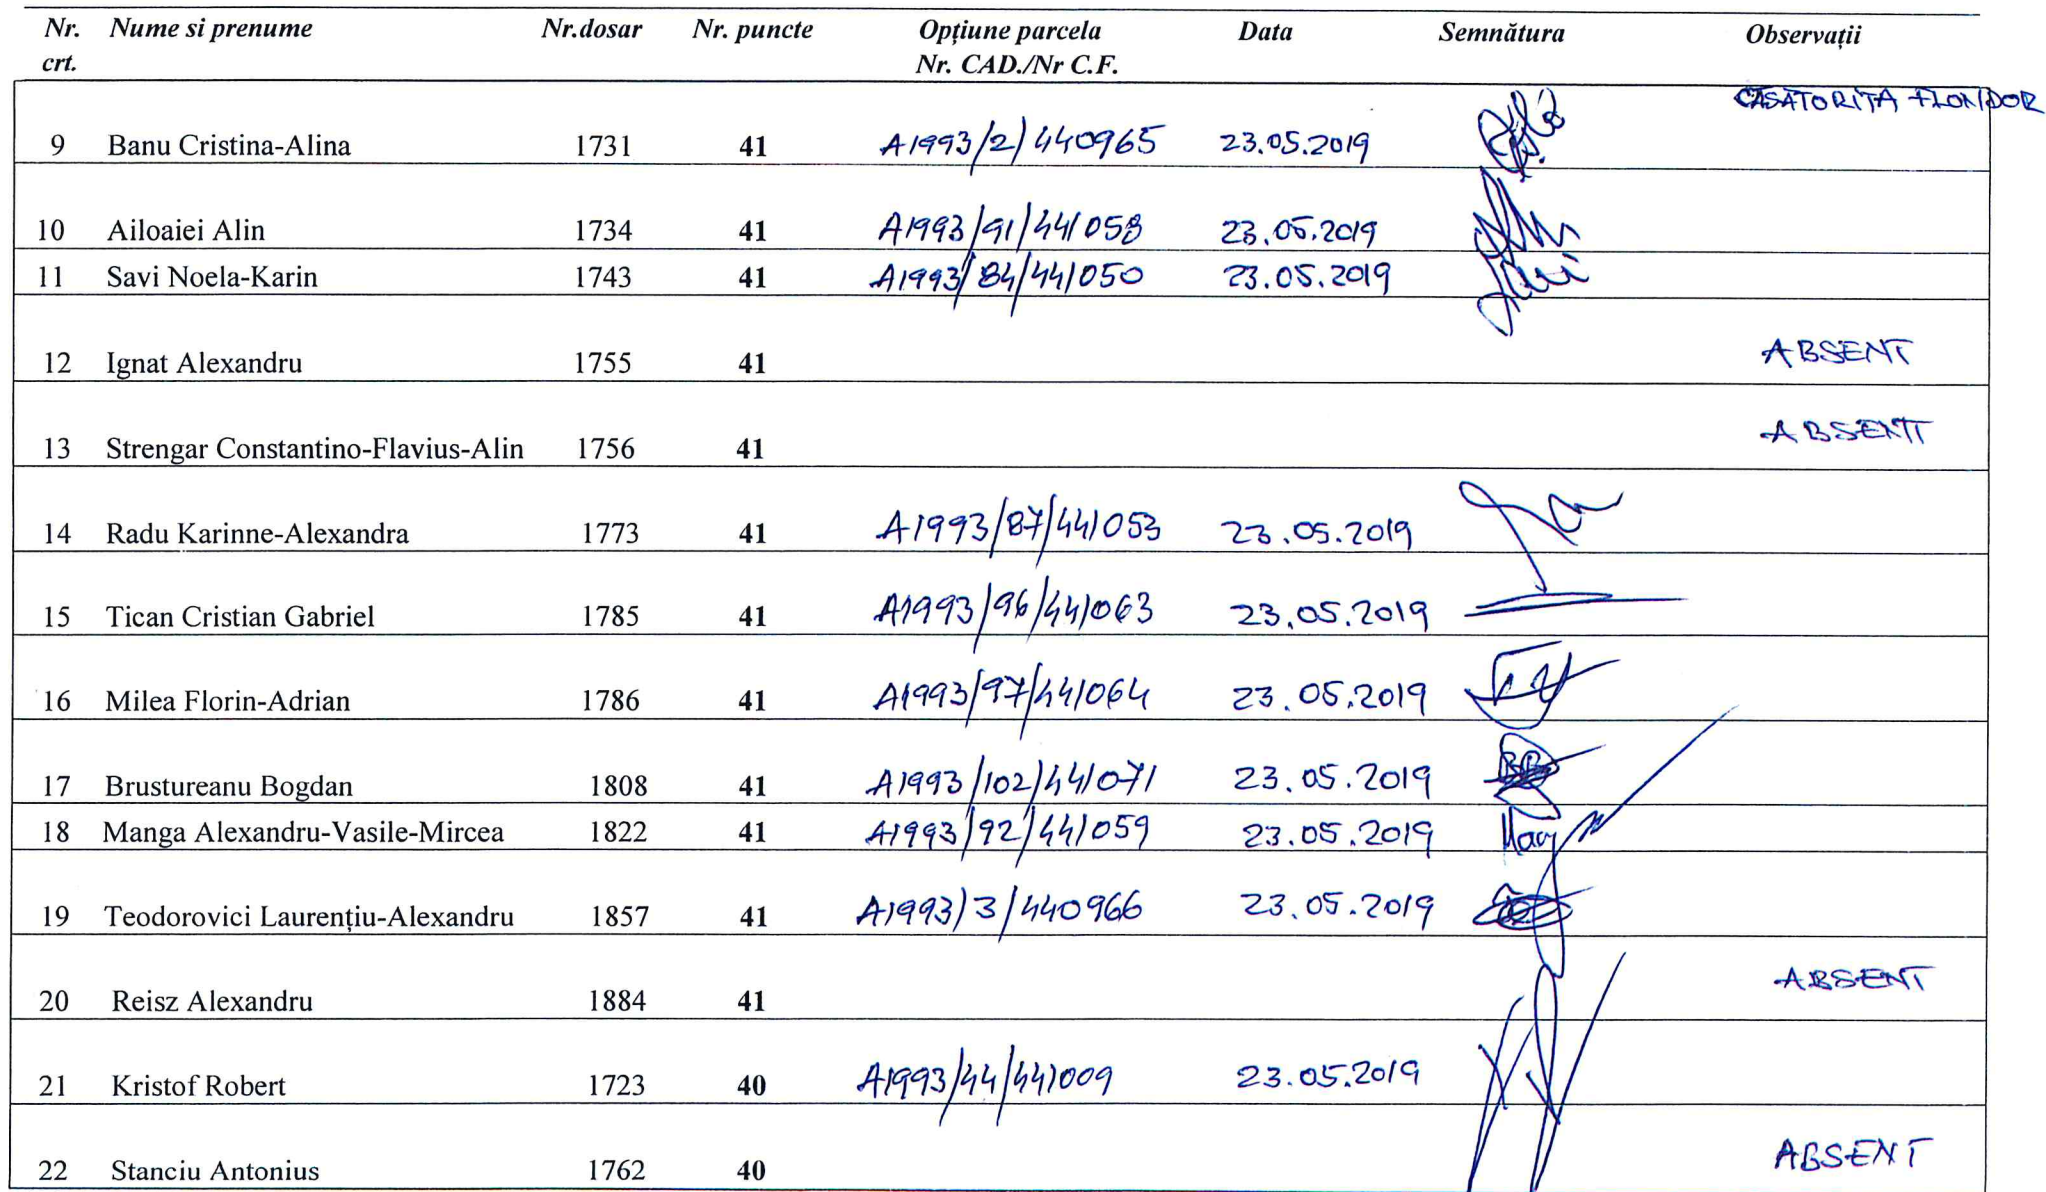 Nr. Nume si prenume Nr.dosar Nr. puncte Opțiune parcela Data Semnătura Observații
crt. Nr. CAD./Nr C.F.
CĂSATORITA FLONDOR
9 Banu Cristina-Alina 1731 41 A1993/2/440965 23.05.2019
10 Ailoaiei Alin 1734 41 A1993/91/441058 23.05.2019
11 Savi Noela-Karin 1743 41 A1993/84/441050 23.05.2019
12 Ignat Alexandru 1755 41 ABSENT
13 Strengar Constantino-Flavius-Alin 1756 41 ABSENT
14 Radu Karinne-Alexandra 1773 41 A1993/87/441053 23.05.2019
15 Tican Cristian Gabriel 1785 41 A1993/96/441063 23.05.2019
16 Milea Florin-Adrian 1786 41 A1993/97/441064 23.05.2019
17 Brustureanu Bogdan 1808 41 A1993/102/441071 23.05.2019
18 Manga Alexandru-Vasile-Mircea 1822 41 A1993/92/441059 23.05.2019
19 Teodorovici Laurențiu-Alexandru 1857 41 A1993/3/440966 23.05.2019
20 Reisz Alexandru 1884 41 ABSENT
21 Kristof Robert 1723 40 A1993/44/441009 23.05.2019
22 Stanciu Antonius 1762 40 ABSENT